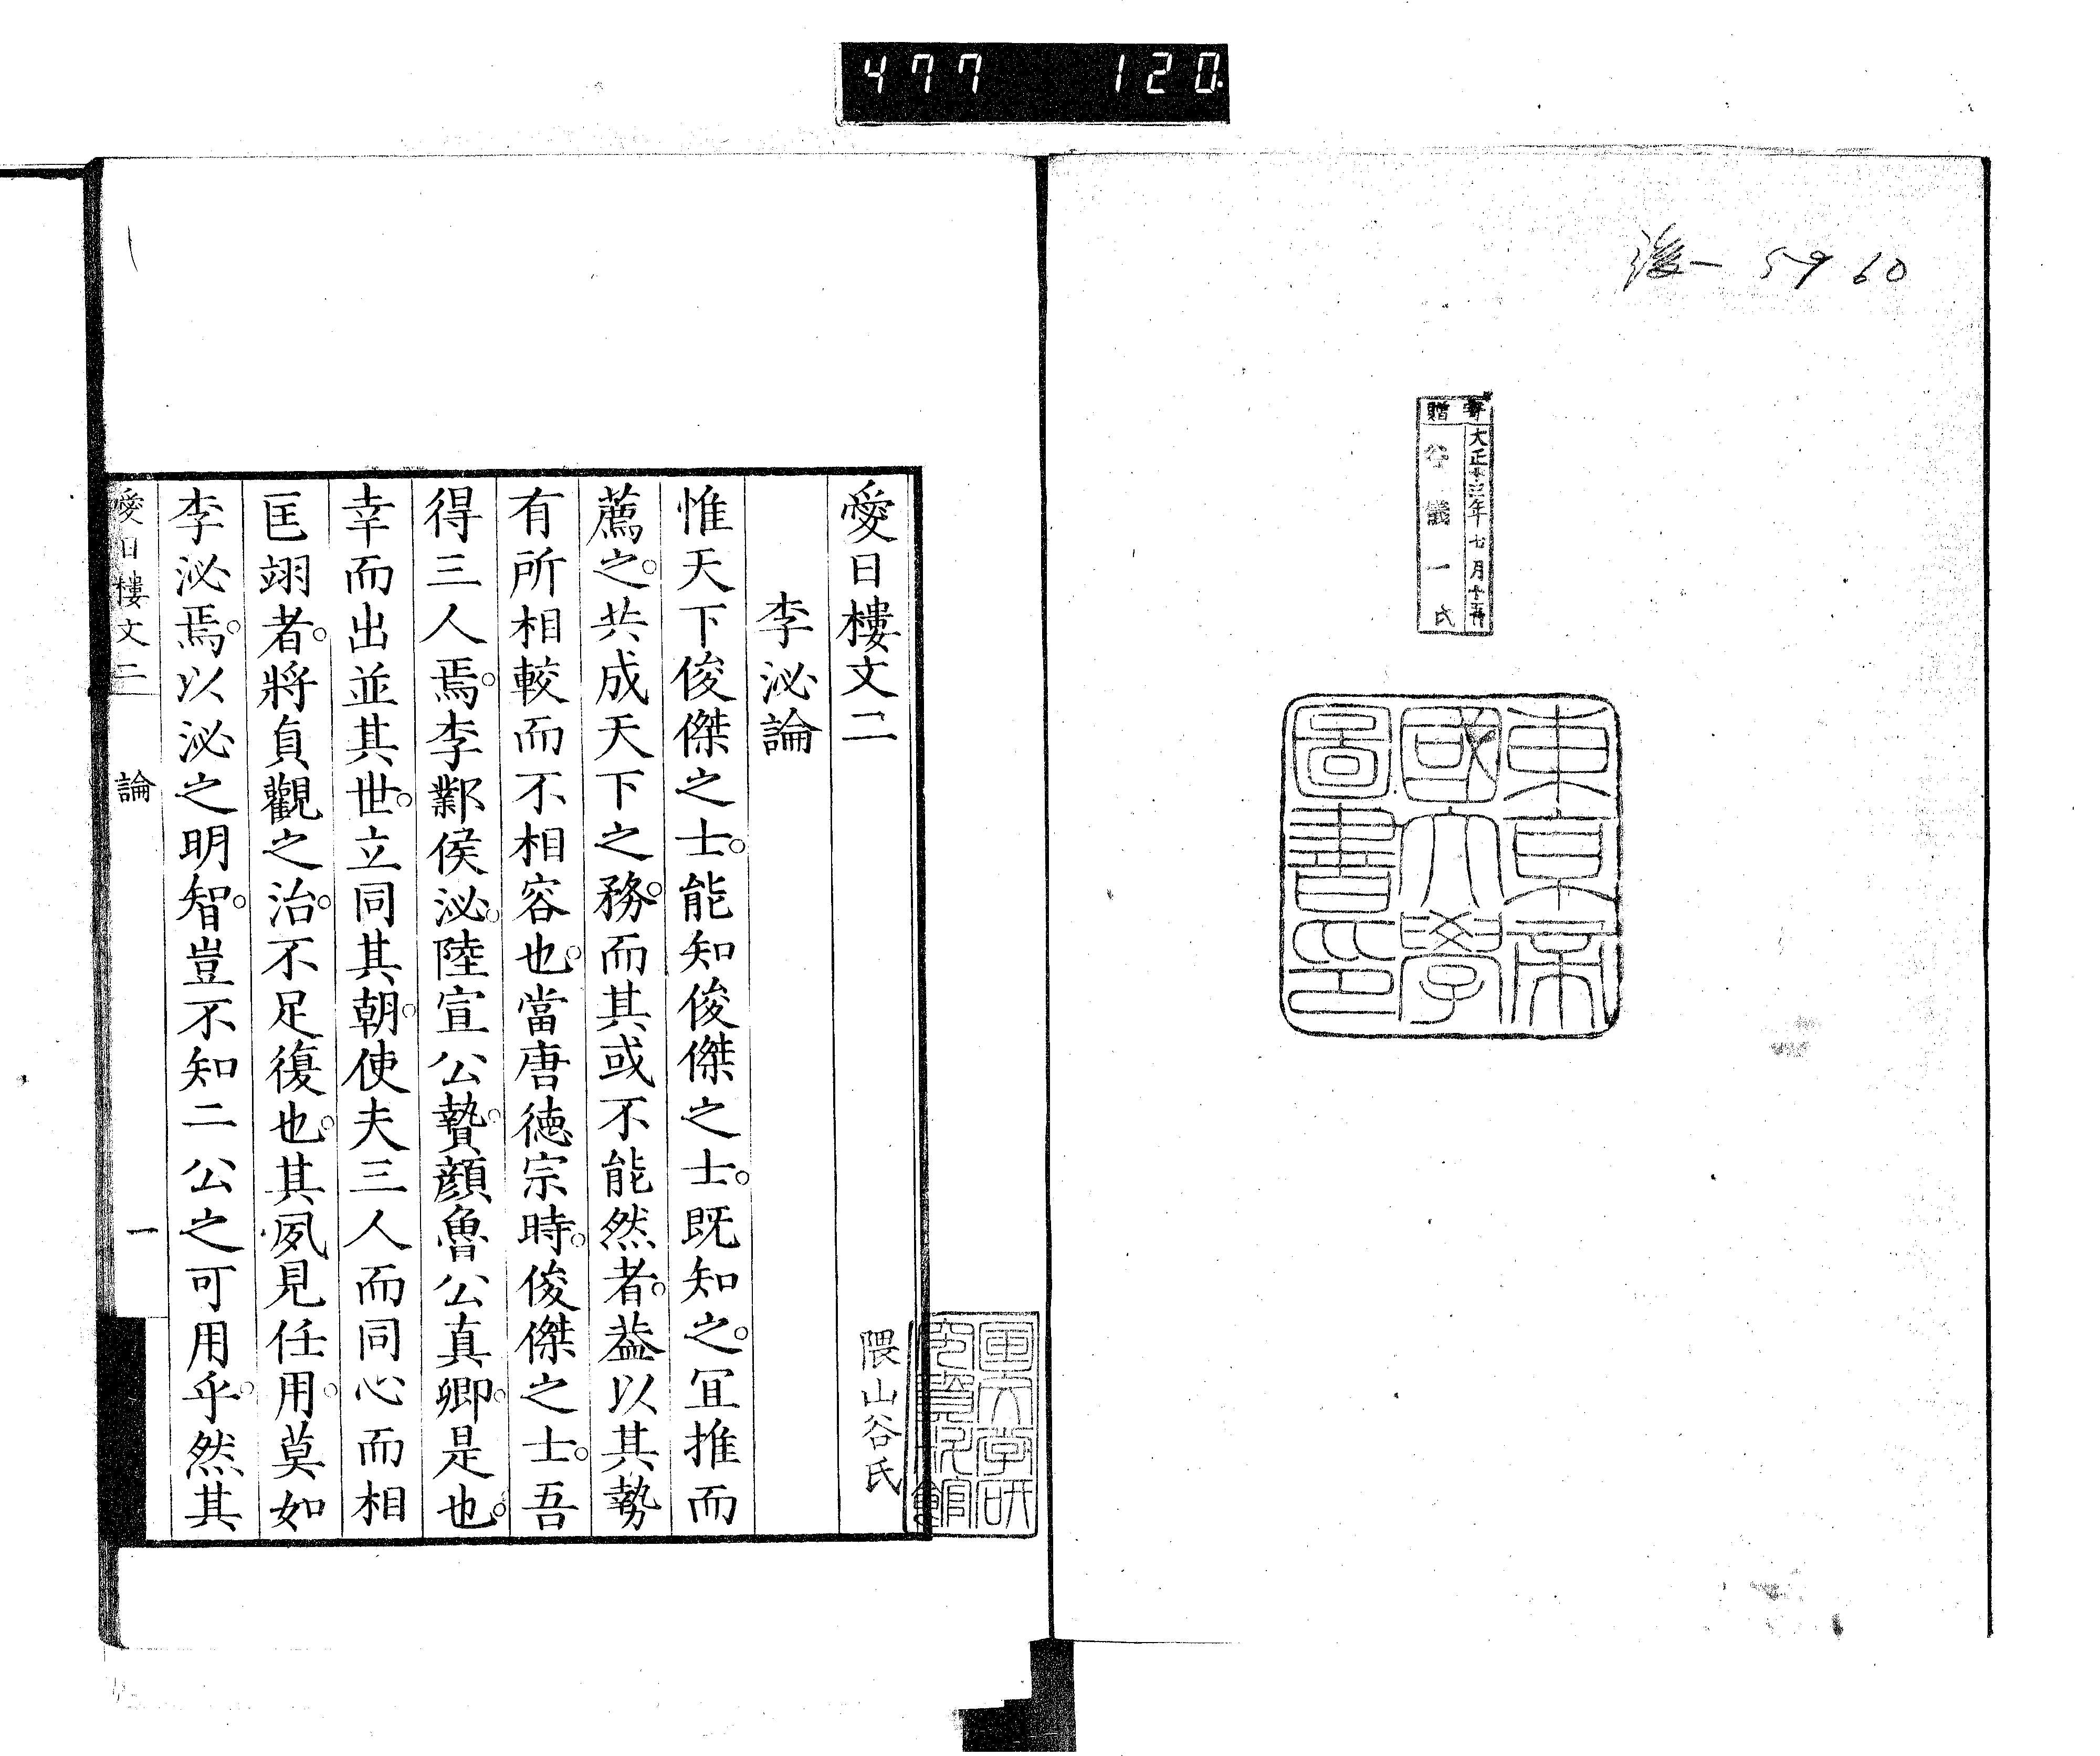 477 120.
後一 5960
寄贈
大正十三年七月十五日
谷儀一氏
東京帝
國大學
圖書印
愛日樓文二
隈山谷氏
李泌論
惟天下俊傑之士。能知俊傑之士。既知之。宜推而
薦之。共成天下之務。而其或不能然者。葢以其勢
有所相較而不相容也。當唐德宗時。俊傑之士。吾
得三人焉。李鄴侯泌。陸宣公贄。顔魯公真卿。是也。
幸而出並其世。立同其朝。使夫三人而同心而相
匡翊者。將貞觀之治。不足復也。其夙見任用。莫如
李泌焉。以泌之明智。豈不知二公之可用乎。然其
愛日樓文二 論 一